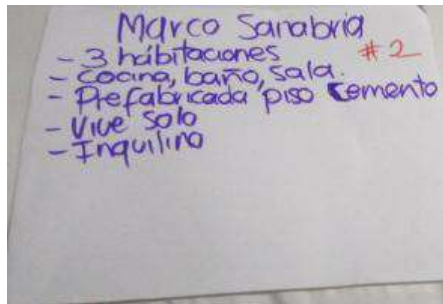 Marco Sanabria
- 3 hábitaciones #2
- Cocina, baño, sala.
- Prefabricada piso cemento
- Vive solo
- Inquilino